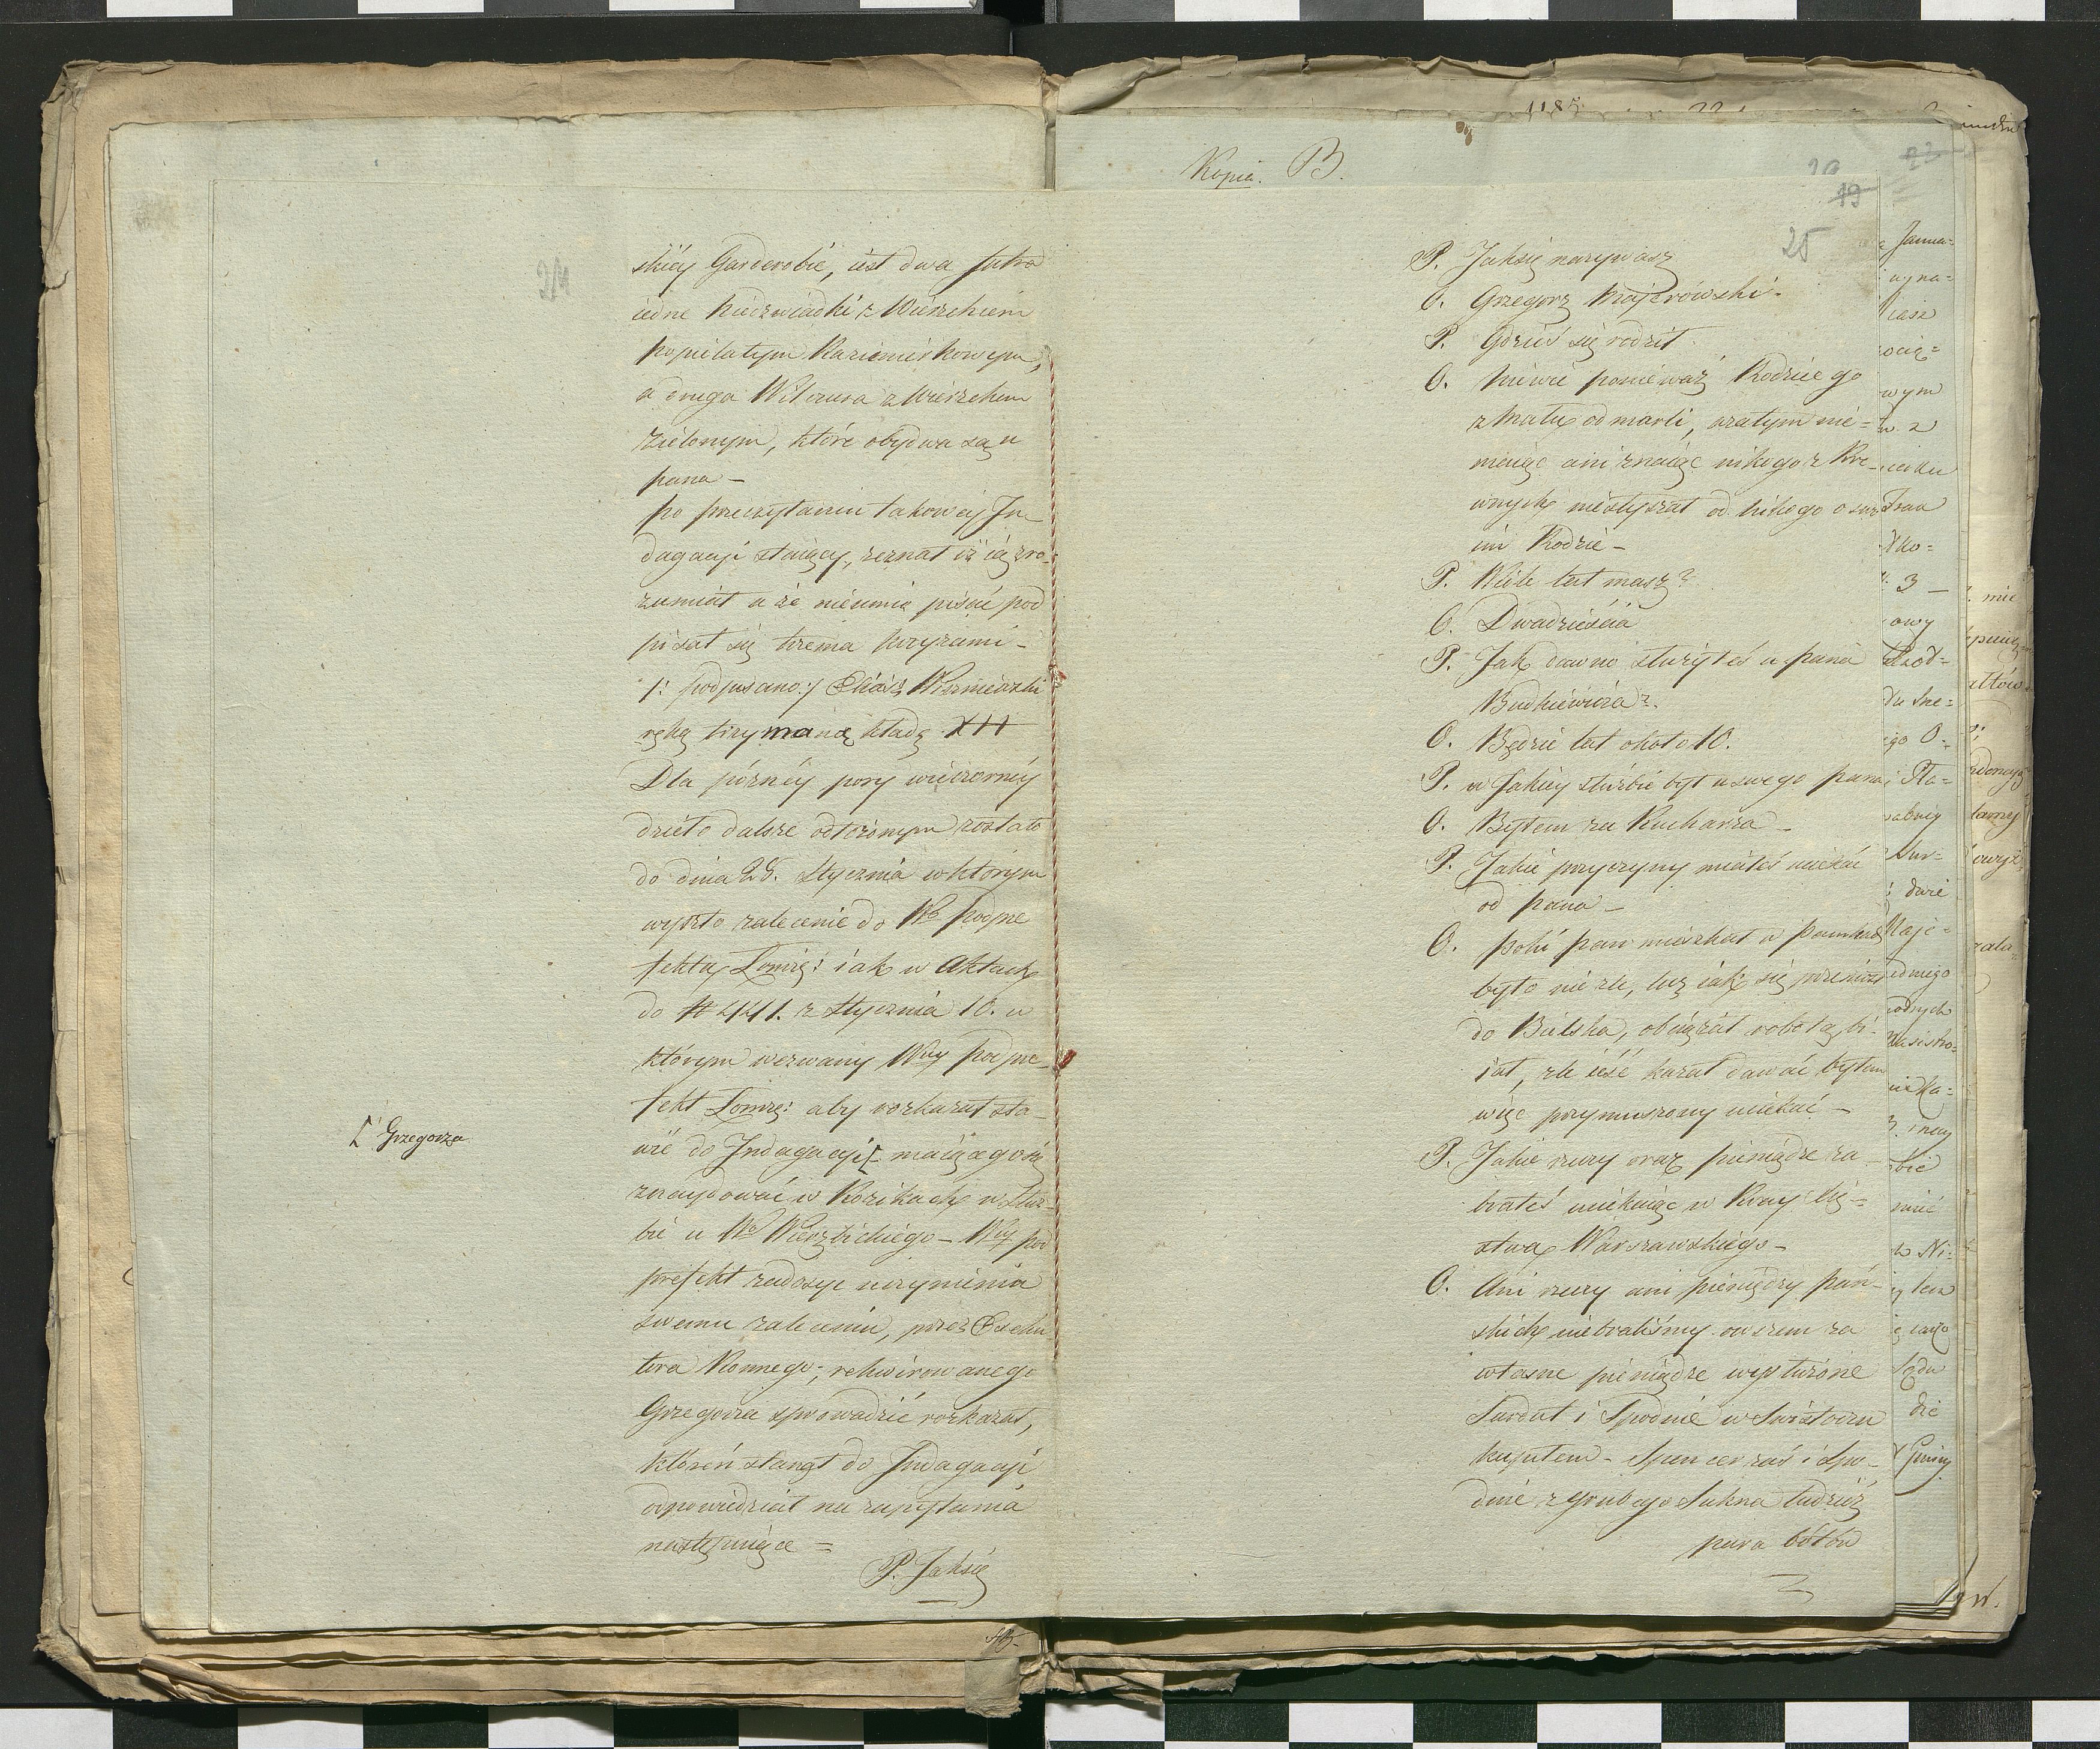 24
skiéy Garderobie, iest dwa futra
iedne Niedzwiadki z Wierzchem
popielatym Kazimirkowym,
a druga Wilczura z Wierzchem
zielonym, które obydwa są u
pana –
po przeczytaniu takowéj In-
dagacyi staiący, zeznał iż ią zro-
zumiał a że nieumie pisać pod
pisał się trzema krzyżami –
/: podpisano:/ Eliasz
ręką trzymaną kładę XII
Dla póznéy pory wieczornéy
dzieło dalsze odłożonym zostało
do dnia 28. Stycznia w którym
wyszło zalecenie do Wo podpre
fekta Łomżę: iak w Aktach
do # 441. z Stycznia 10. w
którym wezwany Wny podpre-
fekt Łomżę: aby rozkazał sta-
wić do Indagacyi [ maiącego się
[ Grzegorza
znaydować w Kozikach w Służ-
bie u Wo Wierzbickiego – Wny pod
prefekt zadosyc uczynienia
swemu zaleceniu, przez Exeku
tora Konnego, rekwirowanego
Grzegorza sprowadzić rozkazał,
któren stanął do Indagacyi
odpowiedział na zapytania
następuiące =
P. Jaksię
Kopia. B.
23
20
19
25
P. Jaksię nazywasz
O. Grzegorz Majerowski.
P. Gdzieś się rodził
O. Niewie ponieważ Rodzice go
z Mału odmarli, a zatym nie-
maiąc ani znaiąc nikogo z Kre-
wnych niesłyszał od nikogo o swo
im Rodzie –
P. Wiele lat masz?
O. Dwadzieścia
P. Jak dawno służyłeś u pana
Budkiewicza?
O. Będzie lat około 10.
P. w Jakiey służbie był u swego pana
O. Byłem za Kucharza –
P. Jakie przyczyny miałeś uciekać
od pana –
O. poki pan mieszkał w
było nie zle, lecz iak się przeniósł
do Bielska, obciążał robotą, bi-
iał, zle iéść kazał dawać byłem
więc przymuszony uciekać –
P. Jakie rzeczy oraz pieniądze za-
brałeś uciekaiąc w Kray Xię-
stwa Warszawskiego –
O. Ani rzeczy ani pieniędzy pań-
skich niebraliśmy owszem za
własne pieniądze wysłużone
Surdut i Spodnie w Swisłoczu
kupiłem – Spencer zaś i Spo-
dnie z grubego Sukna tudzież
para bótów